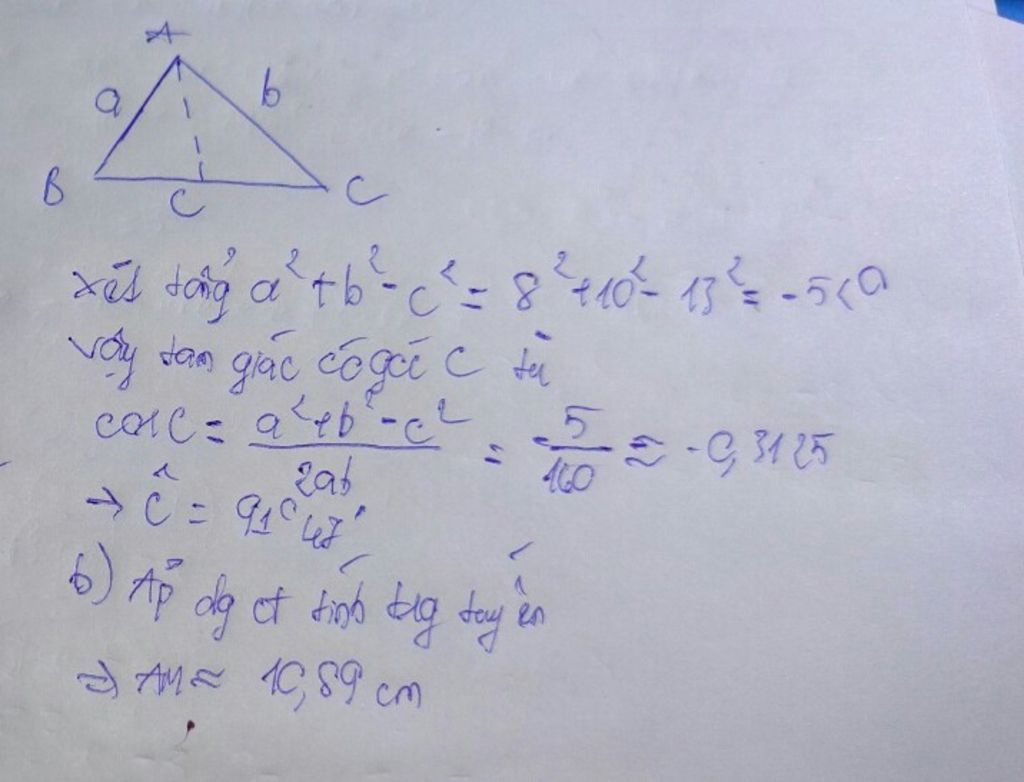 A
a b
B C C
xét tổng a² + b² - c² = 8² + 10² - 13² = -5 < 0
vậy tam giác có góc C tù
cos C = a² + b² - c² / 2ab = -5 / 160 ≈ -0,3125
→ Ĉ = 91° 47'
b) Áp dg ct tính trg tuyến
⇒ AM ≈ 10,89 cm